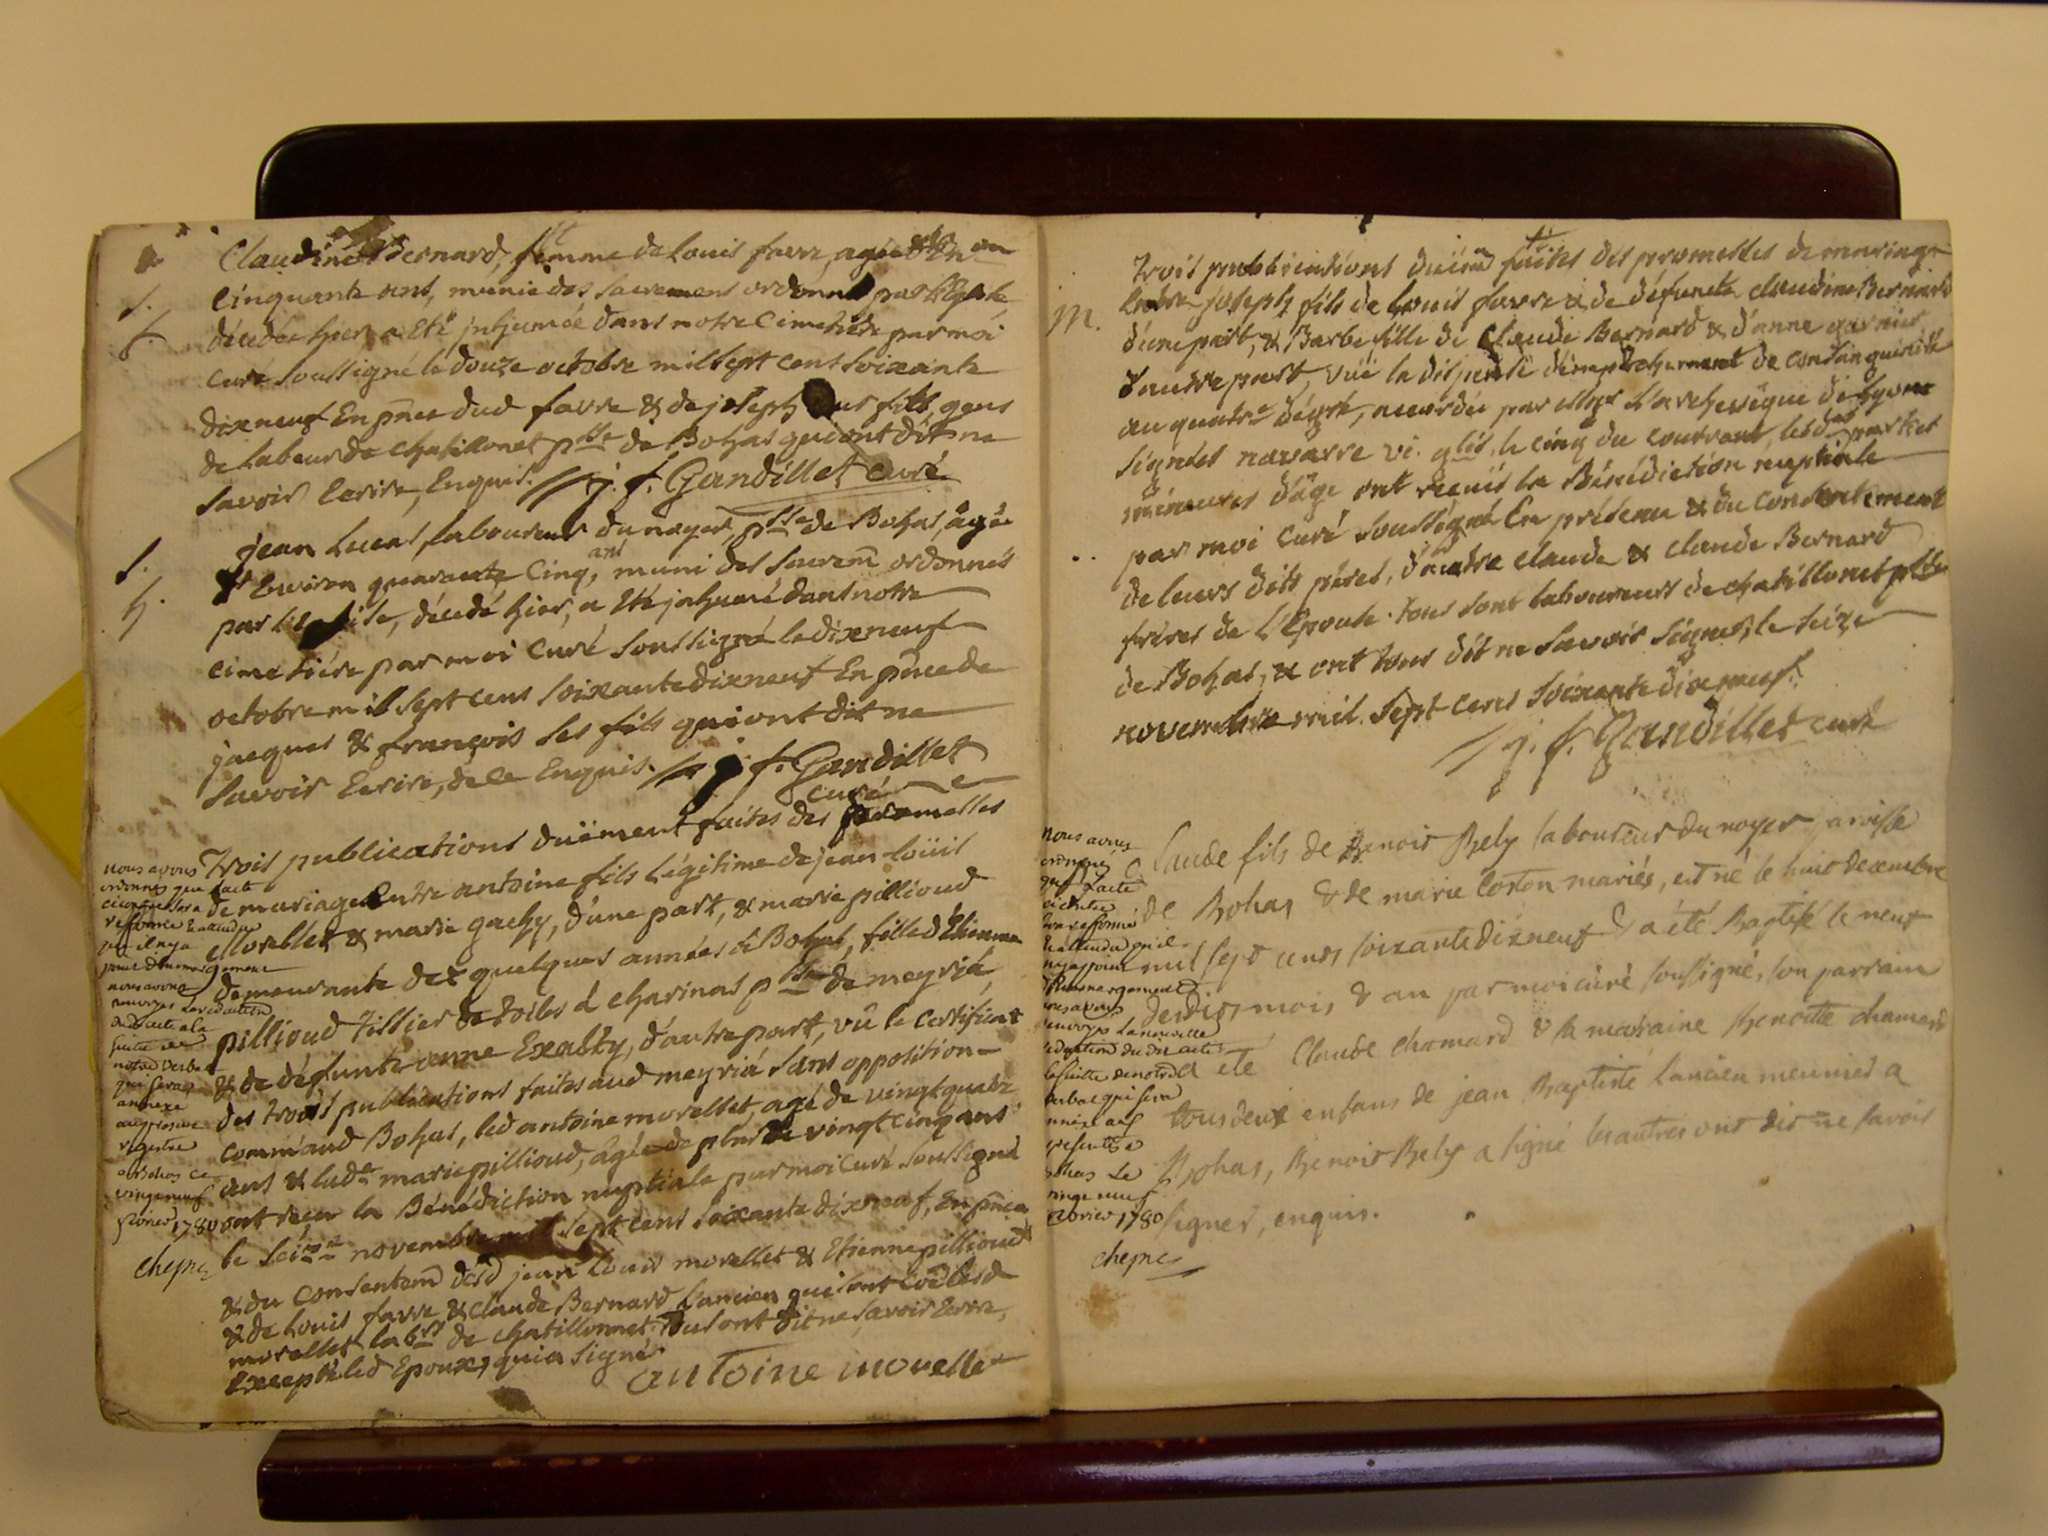 Claudine Bernard, femme de Louis favre, agée d'En on
cinquante ans, munie des sacremens ordonnés par l'Eglise
décédée hier, a Eté jnhumée dans notre Cimetiére par moi
curé soussigné le douze octobre mil sept cent soixante
dixneuf En pnce dud favre & de joseph fils, gens
de Labeur de chatillonet psse de Bohas qui ont dit ne
savoir Ecrire, Enquis. j. f. Gandillet curé
S.
f.
jean Lucas, laboureur du noyer, psse de Bohas, âgé
d'Environ quarante Cinq ans, muni des sacrem ordonnés
par l'Eglise, décédé hier, a Eté jnhumé dans notre
cimetiére par moi Curé soussigné le dixneuf
octobre mil sept cens soixante dixneuf En pnce de
jacques & françois ses fils qui ont dit ne
savoir Ecrire, de ce Enquis. j. f. Gandillet
curé
S.
h.
Trois publications duëment faites des promesses
de mariage Entre antoine fils Légitime de jean Loüis
Morellet & marie gachy, d'une part, & marie pillioud
demeurante dez quelques années à Bohas, fille d'Etienne
pillioud Tissier de toiles à charinas psse de meyriá,
& de défunte anne Exalty, d'autre part, vû le certificat
des trois publications faites aud meyriá sans opposition
comm'aud Bohas, led antoine morellet, agé de vingt quatr
ans & lade marie pillioud, âgée de plus de vingt cinq ans
ont reçu la Bénédiction nuptiale par moi Curé soussigné
le seize novembre mil sept cens soixante dixneuf, En pnce
& du consentem desd jean Louis morellet & Etienne pillioud
& de Louis favre & claude Bernard Lancien qui sont lesd
morellet labrs de chatillonnet. Tous ont dit ne savoir Ecrire,
Excepté led Epoux, qui a signé.
antoine morellet
nous avons
ordonné que lacte
sera
reformé attendu
qu'il n'y a
point d'emmargement
nous avons
renvoyé la redaction
dud acte a la
suite de
notre verbal
qui sera
annexé
au present
registre
a Bohas ce
vingt neuf
fevrier 1780
chesne
Trois publications duëm faites des promesses de mariage
Entre joseph fils de Louis favre & de défuncte claudine Bernard
d'une part, & Barbe fille de Claude Bernard & d'anne garnier
d'autre part, vûe la dispense d'empêchement de consanguinité
au quatre dégré, accordée par Mgr L'archevêque de Lyon
signées navarre vi. glis. le cinq du courrant, lesdes parties
mineures d'âge ont reçuës la Bénédiction nuptiale
par moi Curé soussigné En présence & du Consentement
de leurs dits péres, d'autre claude & claude Bernard
fréres de L'Epouse. tous sont laboureurs de chatillonet psse
de Bohas, & ont tous dit ne savoir signer, le seize
novembre mil. sept cens soixante dixneuf.
j. f. Gandillet curé
m.
Claude fils de Benoit Bely laboureur du noyer paroisse
de Bohas & de marie Coston mariés, est né le huit decembre
mil sept cents soixante dixneuf & a été Baptisé le neuf
desdits mois & an par moi curé soussigné, son parrain
a été Claude chamard & sa maraine Benoitte chamard
tous deux enfans de jean Baptiste lancien meunier a
Bohas, Benoit Bely a signé les autres ont dit ne savoir
signer, enquis.
nous avons
ordonné
que lacte
ci contre
sera reformé
attendu qu'il
n'y a point
d'emmargement
nous avons
renvoyé la nouvelle
redaction du dit acte
a la suitte de notre
verbal qui sera
annexé au
present
Bohas le
vingt neuf
fevrier 1780
chesne